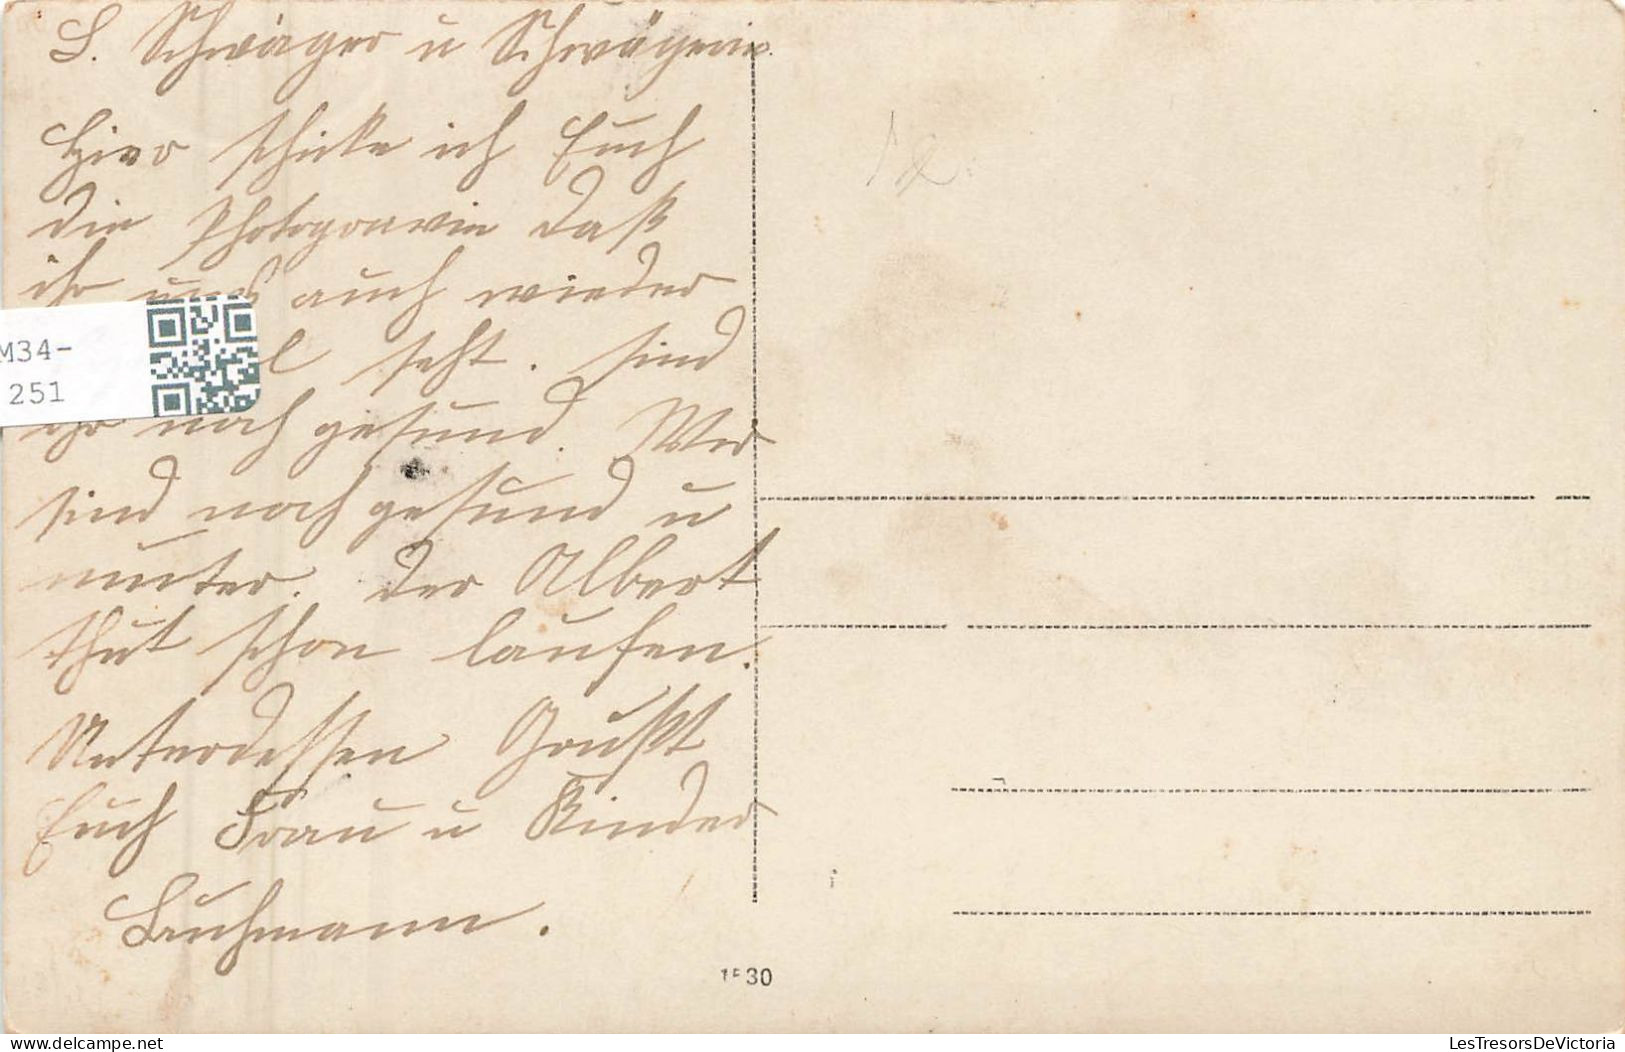 L. Schwager u Schwägerin.
Hier schicke ich Euch
die Photogravie daß
ihr uns auch wieder
l seht. sind
ihr noch gesund. Wir
sind noch gesund u
munter. Der Albert
thut schon laufen.
Unterdessen Grußt
Euch Frau u Kinder
M34-
251
1530
LesTresorsDeVictoria
delcampe.net